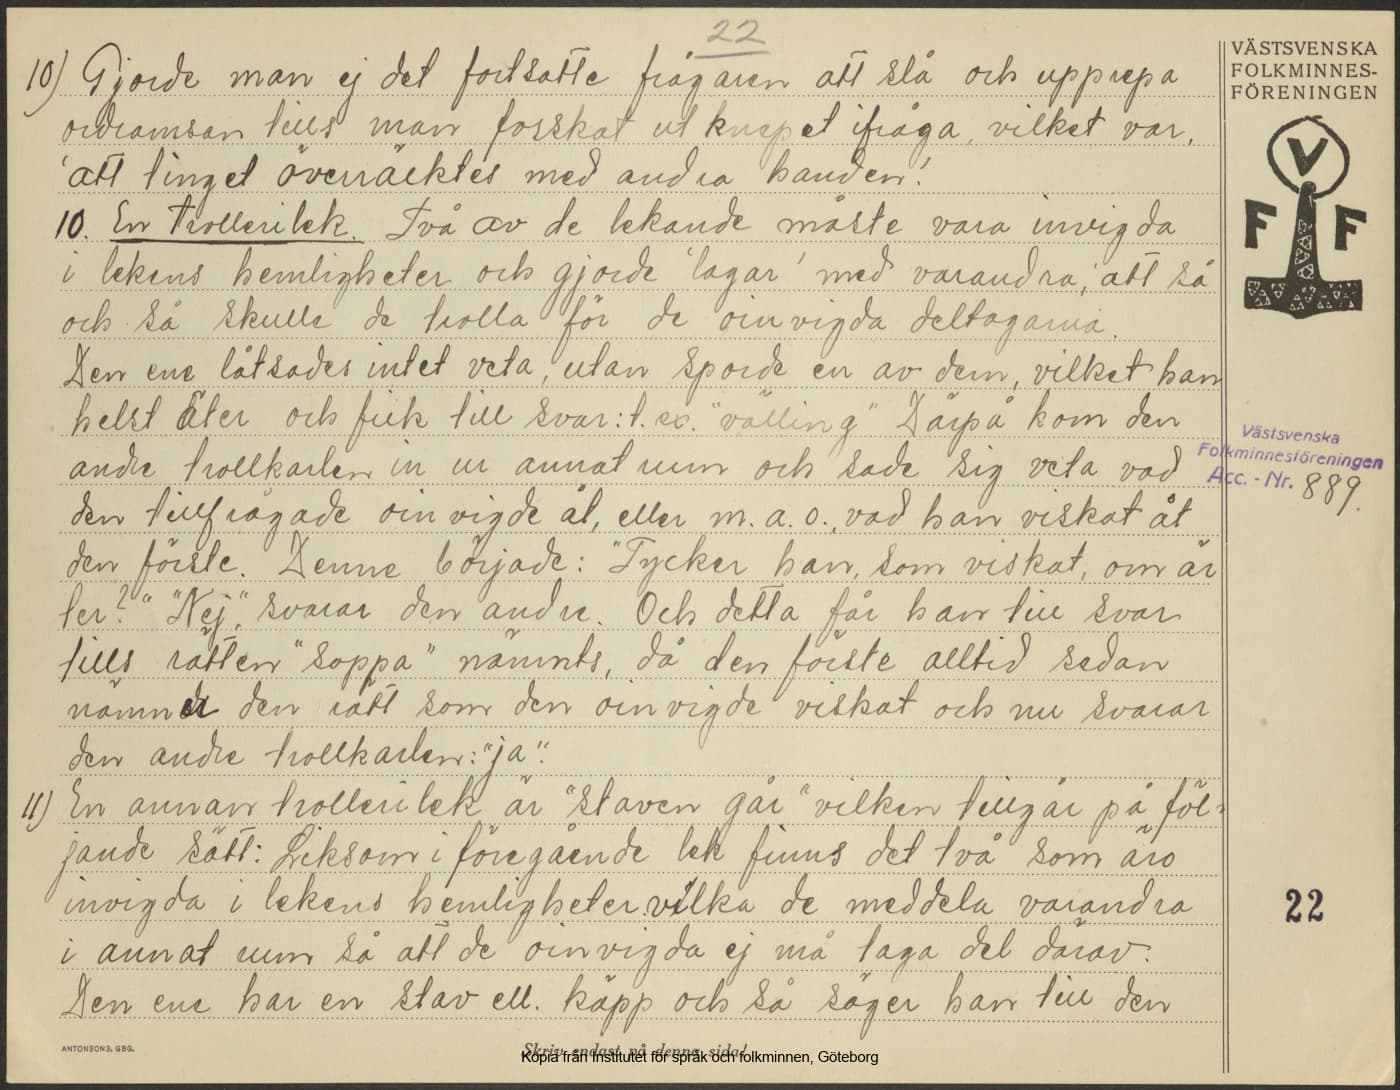 22
10) Gjorde man ej det fortsatte frågaren att slå och upprepa
ordramsan tills man forskat ut knepet ifråga, vilket var,
'att tinget överräcktes med andra handen.'
10. En trollerilek. Två av de lekande måste vara invigda
i lekens hemligheter och gjorde 'lagar' med varandra, att så
och så skulle de trolla för de oinvigda deltagarna.
Den ene låtsades intet veta, utan sporde en av dem, vilket han
helst äter och fick till svar: t. ex. "välling" Därpå kom den
andre trollkarlen in ur annat rum och sade sig veta vad
den tillfrågade oinvigde åt, eller m. a. o., vad han viskat åt
den förste. Denne började: "Tycker han, som viskat, om är
ter?" "Nej", svarar den andre. Och detta får han till svar
tills rätten "soppa" nämnts, då den förste alltid sedan
nämner den rätt som den oinvigde viskat och nu svarar
den andre trollkarlen: "ja".
11) En annan trollerilek är "staven går" vilken tillgår på föl-
jande sätt: Liksom i föregående lek finns det två som äro
invigda i lekens hemligheter vilka de meddela varandra
i annat rum så att de oinvigda ej må taga del därav.
Den ene har en stav ell. käpp och så säger han till den
VÄSTSVENSKA
FOLKMINNES-
FÖRENINGEN
V
F F
Västsvenska
Folkminnesföreningen
Acc. - Nr. 889.
22
ANTONSONS, GBG.
Skriv endast på denna sida!
Kopia från Institutet för språk och folkminnen, Göteborg